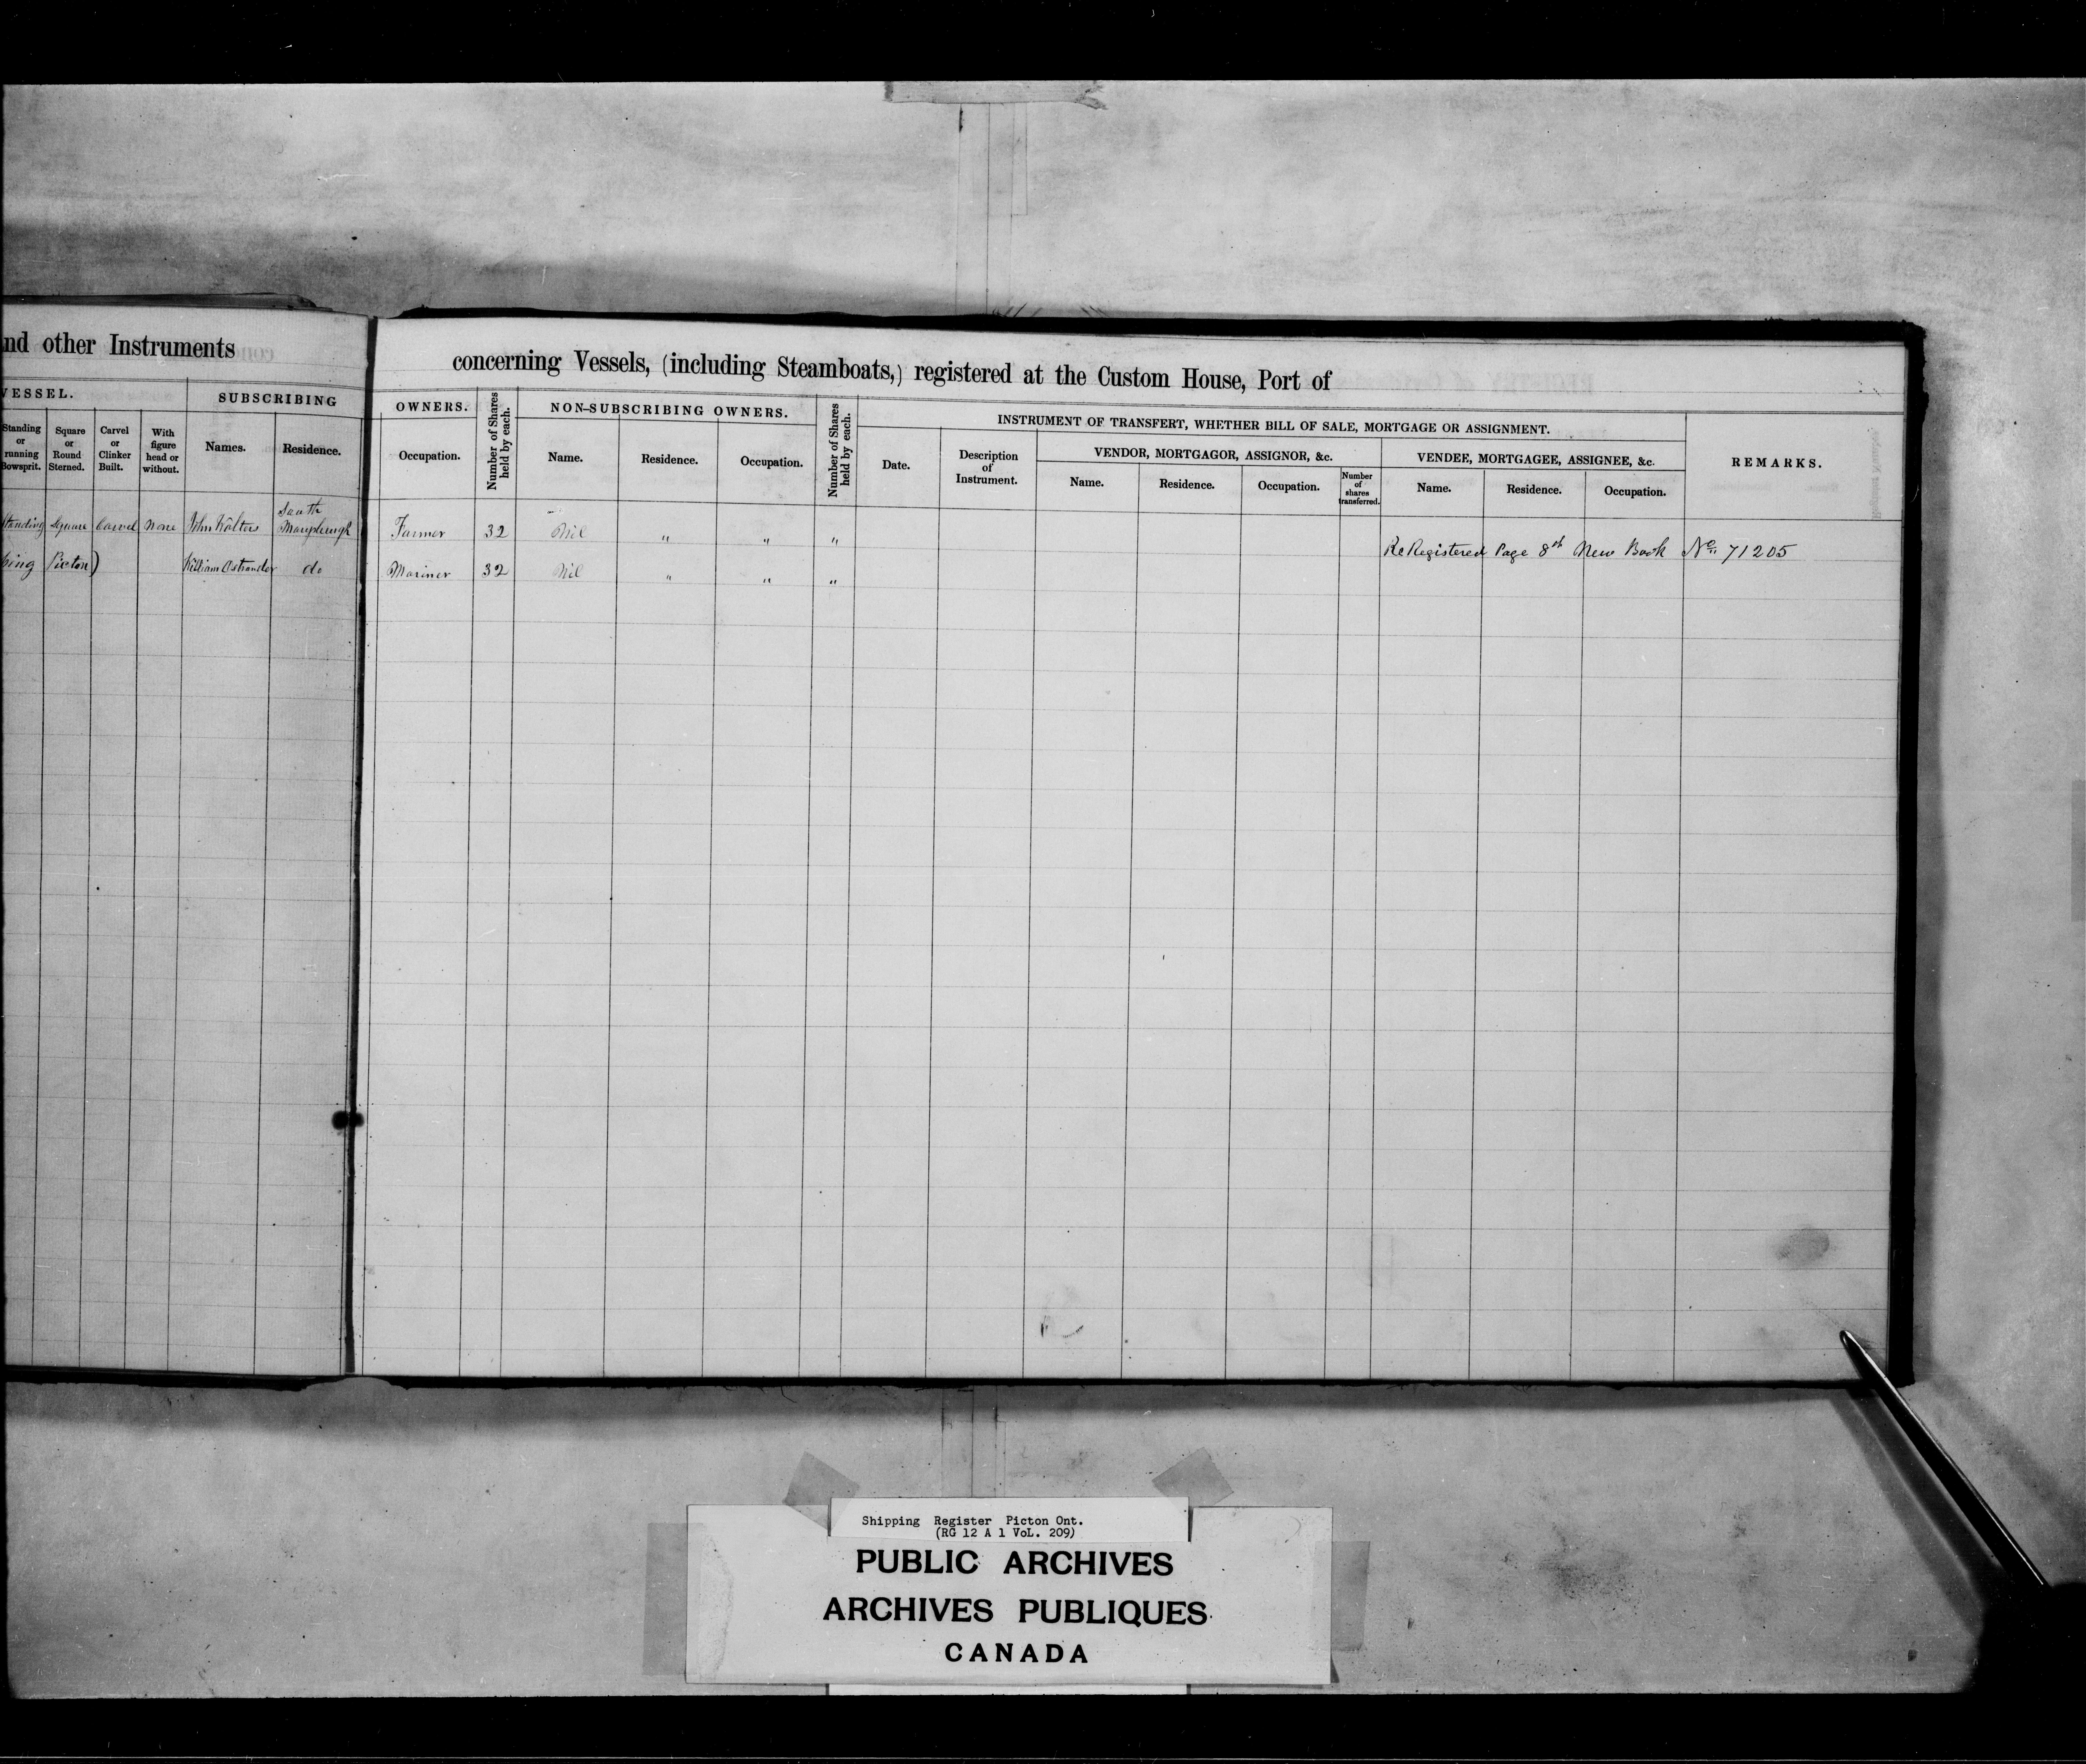 nd other Instruments
concerning Vessels, (including Steamboats,) registered at the Custom House, Port of
VESSEL.
SUBSCRIBING
OWNERS.
Number of Shares held by each.
NON-SUBSCRIBING OWNERS.
Number of Shares held by each.
INSTRUMENT OF TRANSFERT, WHETHER BILL OF SALE, MORTGAGE OR ASSIGNMENT.
REMARKS.
Standing or running Bowsprit.
Square or Round Sterned.
Carvel or Clinker Built.
With figure head or without.
Names.
Residence.
Occupation.
Name.
Residence.
Occupation.
Date.
Description of Instrument.
VENDOR, MORTGAGOR, ASSIGNOR, &c.
VENDEE, MORTGAGEE, ASSIGNEE, &c.
Name.
Residence.
Occupation.
Number of shares transferred.
Name.
Residence.
Occupation.
Standing Square Carvel None John Walters South Marysburgh Farmer 32 Nil " " "
ReRegistered Page 8th New Book No. 71205
Picton) William Ostrander do Mariner 32 Nil " " "
Shipping Register Picton Ont.
(RG 12 A 1 VoL. 209)
PUBLIC ARCHIVES
ARCHIVES PUBLIQUES
CANADA